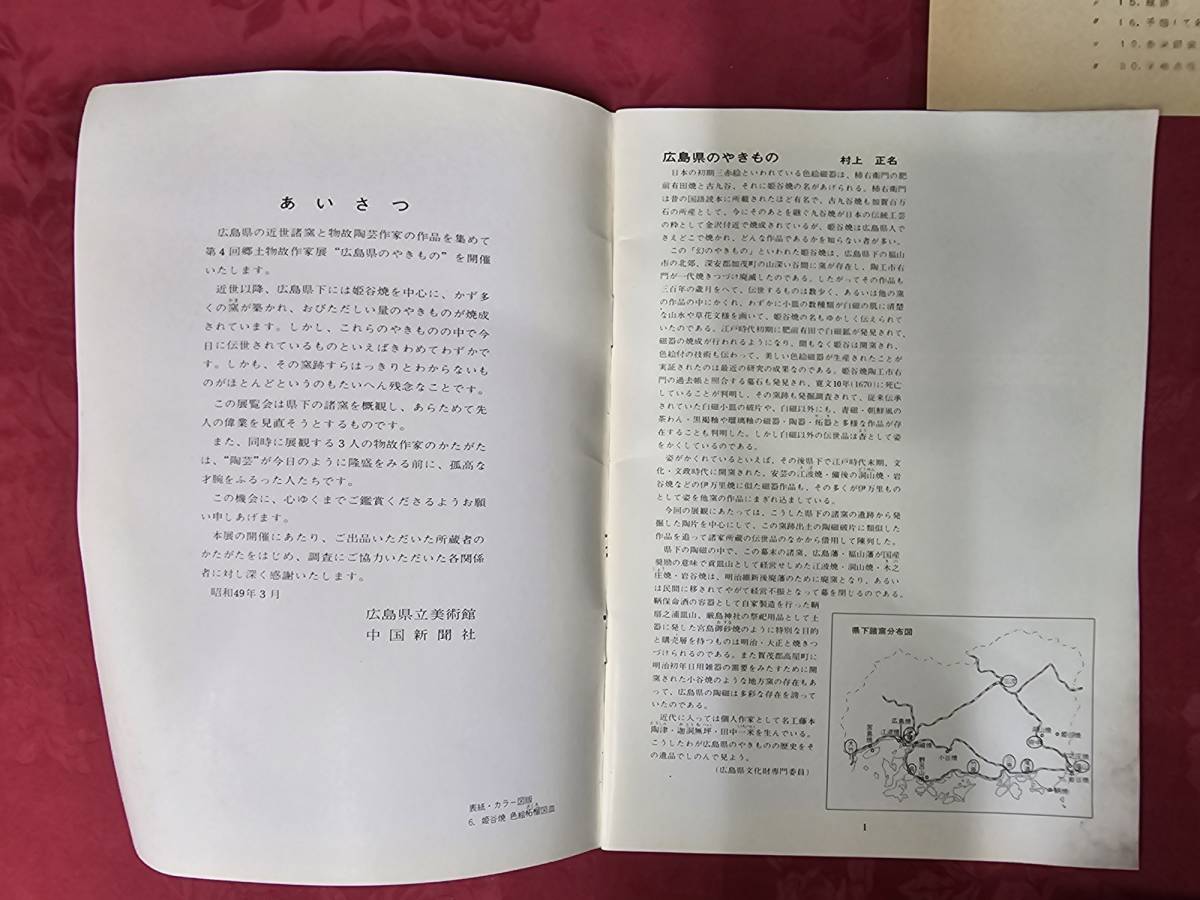 あいさつ
広島県の近世諸窯と物故陶芸作家の作品を集めて
第4回郷土物故作家展“広島県のやきもの”を開催
いたします。
近世以降、広島県下には姫谷焼を中心に、かず多
くの窯が築かれ、おびただしい量のやきものが焼成
されています。しかし、これらのやきものの中で今
日に伝世されているものといえばきわめてわずかで
す。しかも、その窯跡すらはっきりとわからないも
のがほとんどというのもたいへん残念なことです。
この展覧会は県下の諸窯を概観し、あらためて先
人の偉業を見直そうとするものです。
また、同時に展観する3人の物故作家のかたがた
は、“陶芸”が今日のように隆盛をみる前に、孤高な
才腕をふるった人たちです。
この機会に、心ゆくまでご鑑賞くださるようお願
い申しあげます。
本展の開催にあたり、ご出品いただいた所蔵者の
かたがたをはじめ、調査にご協力いただいた各関係
者に対し深く感謝いたします。
昭和49年3月
広島県立美術館
中国新聞社
表紙・カラー図版
6. 姫谷焼 色絵柘榴図皿
広島県のやきもの 村上 正名
日本の初期三赤絵といわれている色絵磁器は、柿右衛門の肥
前有田焼と古九谷、それに姫谷焼の名があげられる。柿右衛門
は昔の国語読本に所載されたほど有名で、古九谷焼も加賀百万
石の所産として、今にそのあとを継ぐ九谷焼が日本の伝統工芸
の粋として金沢付近で焼成されているが、姫谷焼は広島県人で
さえどこで焼かれ、どんな作品であるかを知らない者が多い。
この「幻のやきもの」といわれた姫谷焼は、広島県下の福山
市の北郊、深安郡加茂町の山深い谷間に窯が存在し、陶工市右
門が一代焼きつづけ廃滅したのである。したがってその作品も
三百年の歳月をへて、伝世するものは数少く、あるいは他の窯
の作品の中にかくれ、わずかに小皿の数種類が白磁の肌に清楚
な山水や草花文様を画いて、姫谷焼の名もゆかしく伝えられて
いたのである。江戸時代初期に肥前有田で白磁鉱が発見されて、
磁器の焼成が行われるようになり、間もなく姫谷は開窯され、
色絵付の技術も伝わって、美しい色絵磁器が生産されたことが
実証されたのは最近の研究の成果なのである。姫谷焼陶工市右
門の過去帳と照合する墓石も発見され、寛文10年(1670)に死亡
していることが判明し、その窯跡も発掘調査されて、従来伝承
されていた白磁小皿の破片や、白磁以外にも、青磁・朝鮮風の
茶わん・黒褐釉や瑠璃釉の磁器・陶器・炻器と多様な作品が存
在することも判明した。しかし白磁以外の伝世品は杳として姿
をかくしているのである。
姿がかくれているといえば、その後県下で江戸時代末期、文
化・文政時代に開窯された、安芸の江波焼・備後の洞山焼・岩
谷焼などの伊万里焼に似た磁器作品も、その多くが伊万里もの
として姿を他窯の作品にまぎれ込ましている。
今回の展観にあたっては、こうした県下の諸窯の遺跡から発
掘した陶片を中心にして、この窯跡出土の陶磁破片に類似した
作品を追って諸家所蔵の伝世品のなかから借用して陳列した。
県下の陶磁の中で、この幕末の諸窯、広島藩・福山藩が国産
奨励の意味で貢皿山として経営せしめた江波焼・洞山焼・木之
庄焼・岩谷焼は、明治維新後廃藩のために廃窯となり、あるい
は民間に移されてやがて経営不振となって幕を閉じるのである。
鞆保命酒の容器として自家製造を行った鞆
扇之浦皿山、厳島神社の祭祀用品として土
器に発した宮島御砂焼のように特別な目的
と購売層を持つものは明治・大正と焼きつ
づけられるのである。また賀茂郡高屋町に
明治初年日用雑器の需要をみたすために開
窯された小谷焼のような地方窯の存在もあ
って、広島県の陶磁は多彩な存在を誇って
いたのである。
近代に入っては個人作家として名工藤本
陶津・迦洞無坪・田中一米を生んでいる。
こうしたわが広島県のやきものの歴史をそ
の遺品でしのんで見よう。
(広島県文化財専門委員)
県下諸窯分布図
広島焼
江波焼
宮島焼
小谷焼
洞山焼
姫谷焼
1